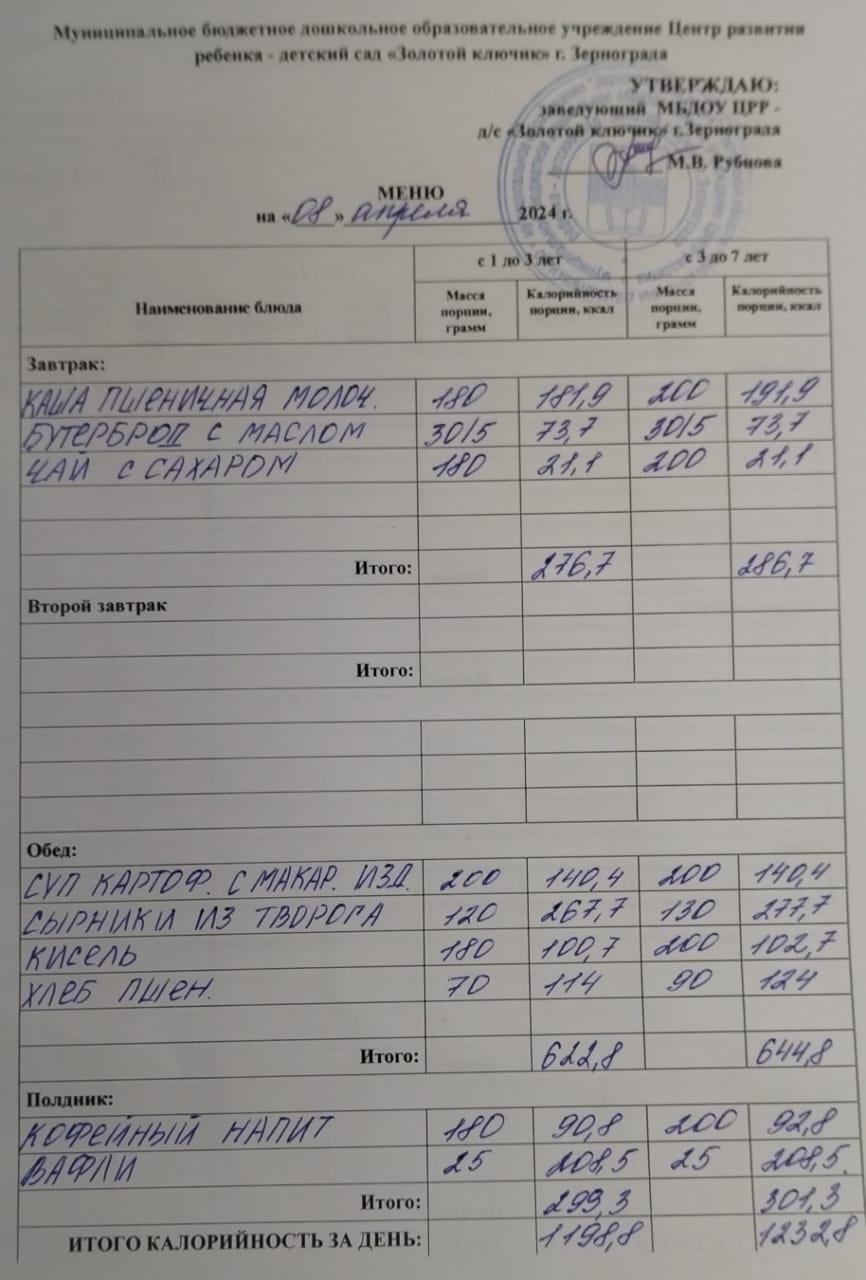 Муниципальное бюджетное дошкольное образовательное учреждение Центр развития
ребенка - детский сад «Золотой ключик» г. Зернограда
УТВЕРЖДАЮ:
заведующий МБДОУ ЦРР -
д/с «Золотой ключик» г.Зернограда
М.В. Рубцова
МЕНЮ
на «08» апреля 2024 г.
Наименование блюда
с 1 до 3 лет
с 3 до 7 лет
Масса порции, грамм
Калорийность порции, ккал
Масса порции, грамм
Калорийность порции, ккал
Завтрак:
КАША ПШЕНИЧНАЯ МОЛОЧ. 180 181,9 200 191,9
БУТЕРБРОД С МАСЛОМ 30/5 73,7 30/5 73,7
ЧАЙ С САХАРОМ 180 21,1 200 21,1
Итого: 276,7 286,7
Второй завтрак
Итого:
Обед:
СУП КАРТОФ. С МАКАР. ИЗД. 200 140,4 200 140,4
СЫРНИКИ ИЗ ТВОРОГА 120 267,7 130 277,7
КИСЕЛЬ 180 100,7 200 102,7
ХЛЕБ ПШЕН. 70 114 90 124
Итого: 622,8 644,8
Полдник:
КОФЕЙНЫЙ НАПИТ 180 90,8 200 92,8
ВАФЛИ 25 208,5 25 208,5
Итого: 299,3 301,3
ИТОГО КАЛОРИЙНОСТЬ ЗА ДЕНЬ: 1198,8 1232,8